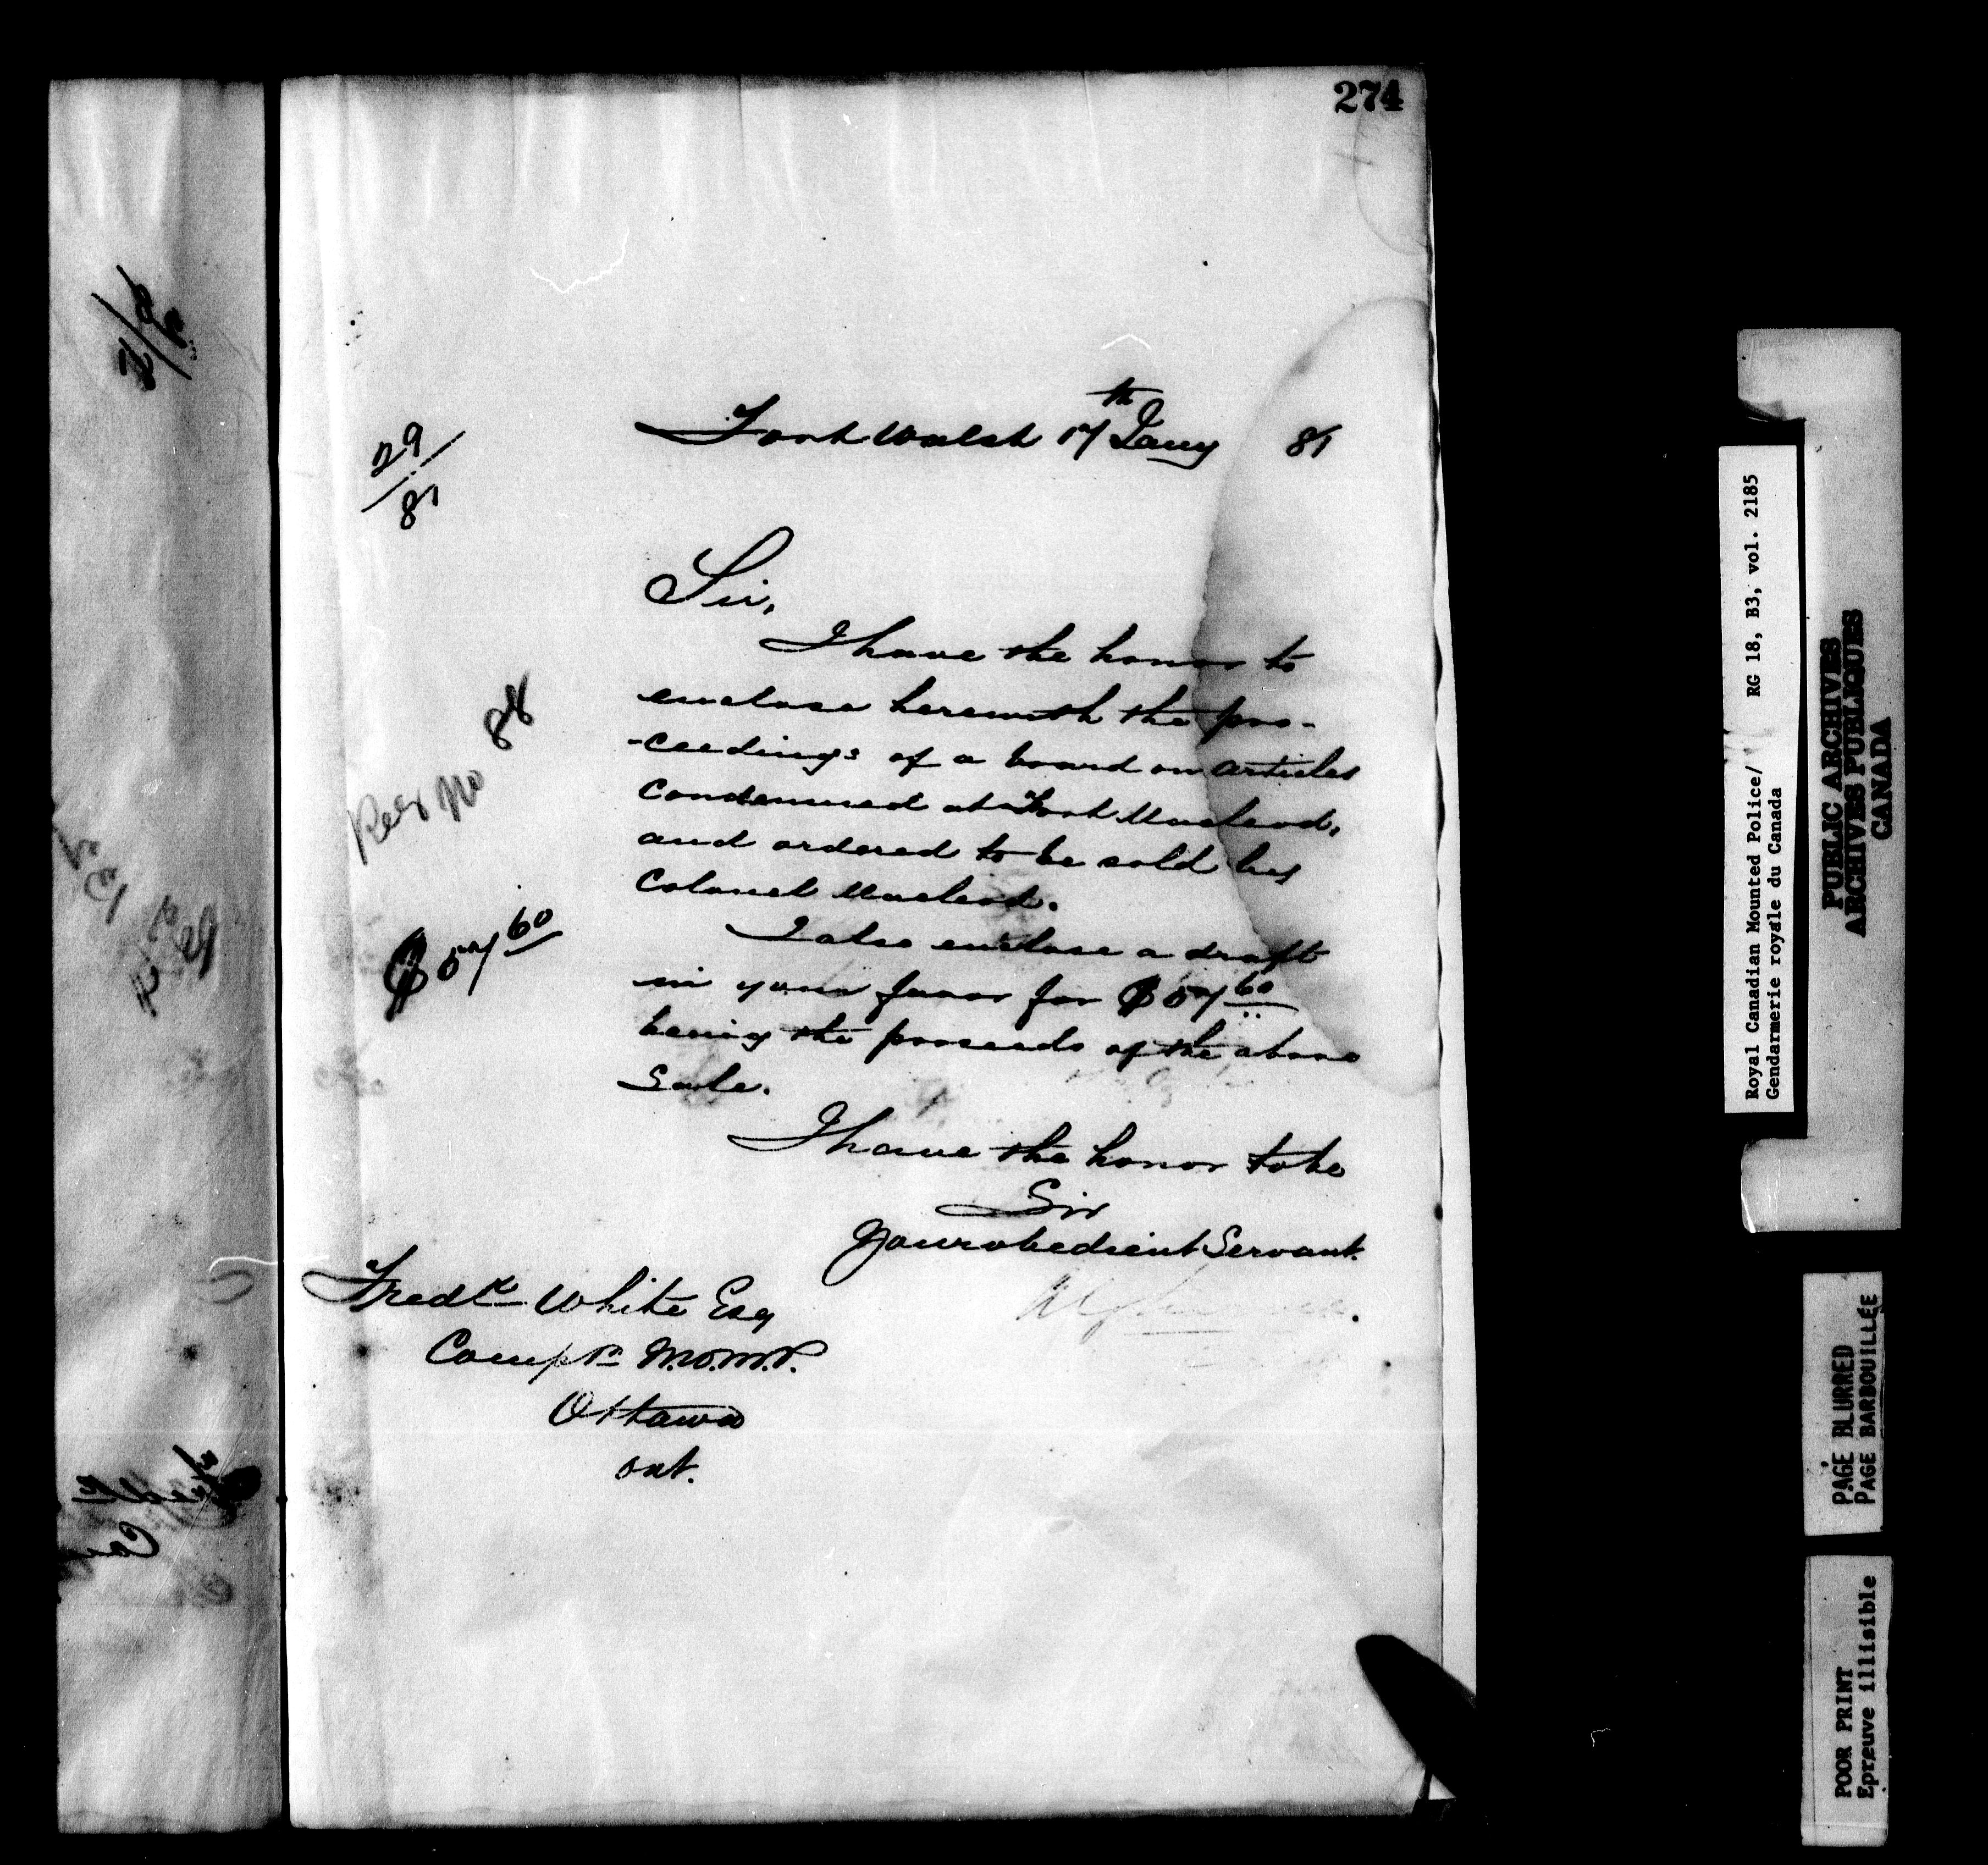 274
Fort Walsh 17th Jany 81
29/81
Sir,
I have the honor to
enclose herewith the pro-
-ceedings of a board on articles
Condemned at Fort Macleod,
and ordered to be sold by
Colonel Macleod.
I also enclose a draft
in your favor for $57 60
being the proceeds of the above
Sale.
I have the honor to be
Sir
Your obedient Servant.
No 88
$57 60
Fredk White Esq
Comptr N.W.M.P.
Ottawa
Ont.
Royal Canadian Mounted Police/ RG 18, B3, vol. 2185
Gendarmerie royale du Canada
PUBLIC ARCHIVES
ARCHIVES PUBLIQUES
CANADA
PAGE BLURRED
PAGE BARBOUILLÉE
POOR PRINT
Epreuve illisible